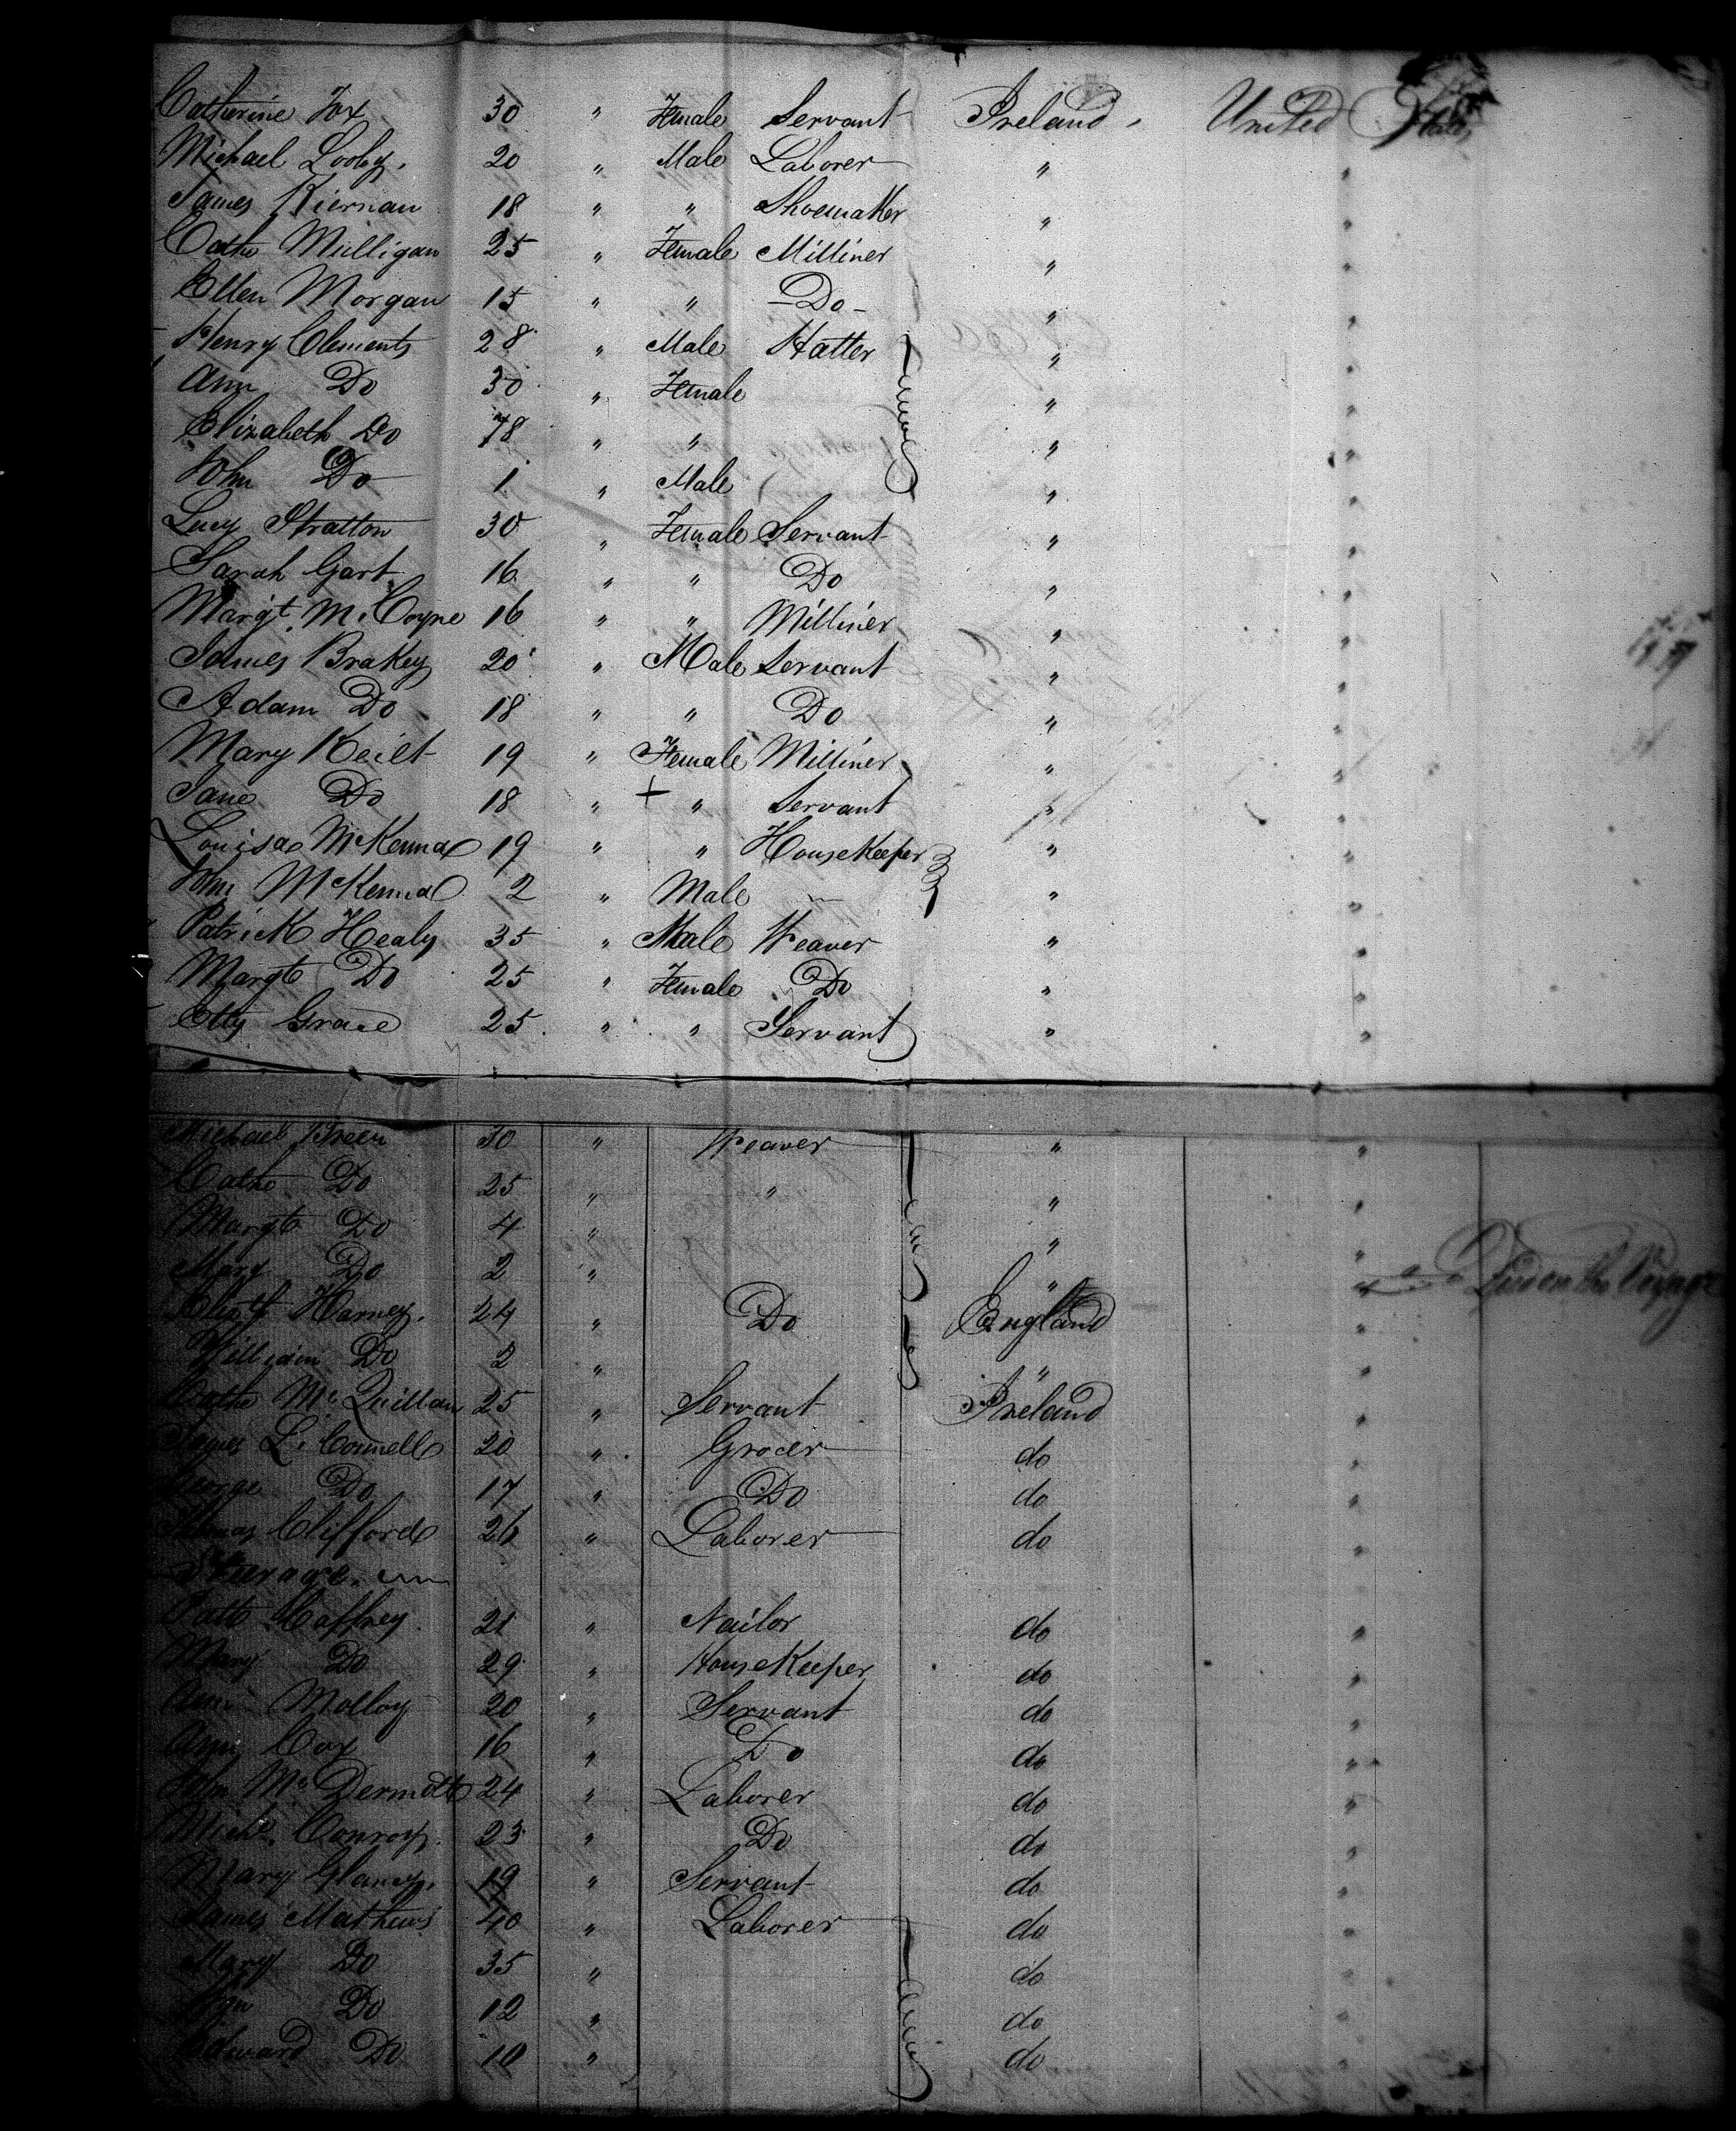 Catherine Fox 30 " Female Servant Ireland, United States
Michael Looby. 20 " Male Laborer " "
James Kiernan 18 " " Shoemaker " "
Cathe Milligan 25 " Female Milliner " "
Ellen Morgan 15 " " Do " "
Henry Clements 28 " Male Hatter " "
Ann Do 30 " Female " "
Elizabeth Do 78 " " " "
John Do 1 " Male " "
Lucy Stratton 30 " Female Servant " "
Sarah Gart 16 " " Do " "
Margt. McCoyne 16 " " Milliner " "
James Brakey 20 " Male Servant " "
Adam Do 18 " " Do " "
Mary Keilt 19 " Female Milliner " "
Jane Do 18 " + " Servant " "
Louisa McKenna 19 " " HouseKeeper " "
John McKenna 2 " Male " "
Patrick Healy 35 " Male Weaver " "
Margt Do 25 " Female Do " "
Etty Grace 25 " " Servant " "
Michael Breen 30 " Weaver " "
Cathe Do 25 " " " "
Margt Do 4 " " "
Mary Do 2 " " " Died on the Voyage
Harney. 24 " Do England "
William Do 2 " " "
Cathe McQuillan 25 " Servant Ireland "
James Connell 20 " Grocer do "
George Do 17 " Do do "
Thomas Clifford 26 " Laborer do "
Steerage.
Patt Caffrey 21 " Nailor do "
Mary Do 29 " HouseKeeper do "
Ann Molloy 20 " Servant do "
Ann Cox 16 " Do do "
John McDermott 24 " Laborer do "
Michl. Conroy. 23 " Do do "
Mary Glancy. 19 " Servant do "
James Mathews 40 " Laborer do "
Mary Do 35 " do "
Do 12 " do "
Edward Do 10 " do "